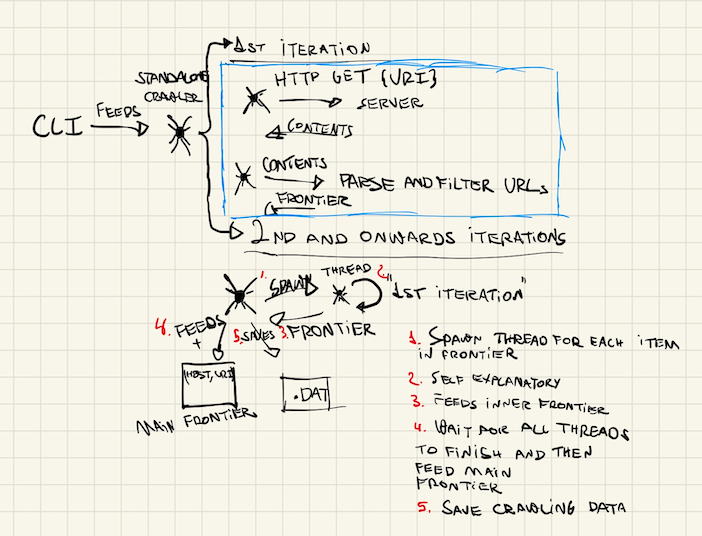 1st ITERATION
STANDALONE
CRAWLER
HTTP GET {URI}
SERVER
CLI
FEEDS
CONTENTS
CONTENTS
PARSE AND FILTER URLs
FRONTIER
2ND AND ONWARDS ITERATIONS
1. SPAWN
THREAD
2.
"1ST ITERATION"
4. FEEDS
+
5. SAVES
3. FRONTIER
(HOST, URI)
.DAT
MAIN FRONTIER
1. SPAWN THREAD FOR EACH ITEM
IN FRONTIER
2. SELF EXPLANATORY
3. FEEDS INNER FRONTIER
4. WAIT FOR ALL THREADS
TO FINISH AND THEN
FEED MAIN
FRONTIER
5. SAVE CRAWLING DATA